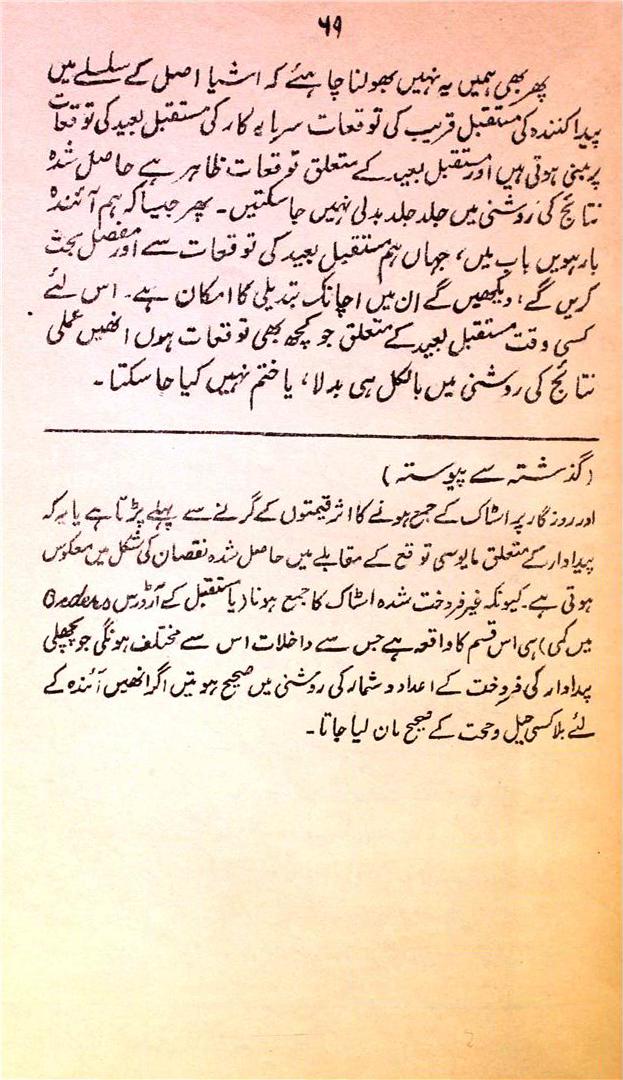 ۶۹
پھر بھی ہمیں یہ نہیں بھولنا چاہئے کہ اشیا اصل کے سلسلے میں
پیدا کنندہ کی مستقبل قریب کی توقعات سرمایہ کار کی مستقبل بعید کی توقعات
پر مبنی ہوتی ہیں اور مستقبل بعید کے متعلق توقعات ظاہر ہے حاصل شدہ
نتائج کی روشنی میں جلد جلد بدلی نہیں جا سکتیں۔ پھر جیسا کہ ہم آئندہ
بارہویں باب میں، جہاں ہم مستقبل بعید کی توقعات سے اور مفصل بحث
کریں گے، دیکھیں گے ان میں اچانک تبدیلی کا امکان ہے۔ اس لئے
کسی وقت مستقبل بعید کے متعلق جو کچھ بھی توقعات ہوں انھیں عملی
نتائج کی روشنی میں بالکل ہی بدلا، یا ختم نہیں کیا جا سکتا۔
(گذشتہ سے پیوستہ)
اور روزگار پر اسٹاک کے جمع ہونے کا اثر قیمتوں کے گرنے سے پہلے پڑتا ہے یا یہ کہ
پیداوار کے متعلق مایوسی توقع کے مقابلے میں حاصل شدہ نقصان کی شکل میں معکوس
ہوتی ہے۔ کیونکہ غیر فروخت شدہ اسٹاک کا جمع ہونا (یا مستقبل کے آرڈرس Orders
میں کمی) ہی اس قسم کا واقعہ ہے جس سے داخلات اس سے مختلف ہونگی جو پچھلی
پیداوار کی فروخت کے اعداد و شمار کی روشنی میں صحیح ہوتیں اگر انھیں آئندہ کے
لئے بلا کسی حیل و حجت کے صحیح مان لیا جاتا۔